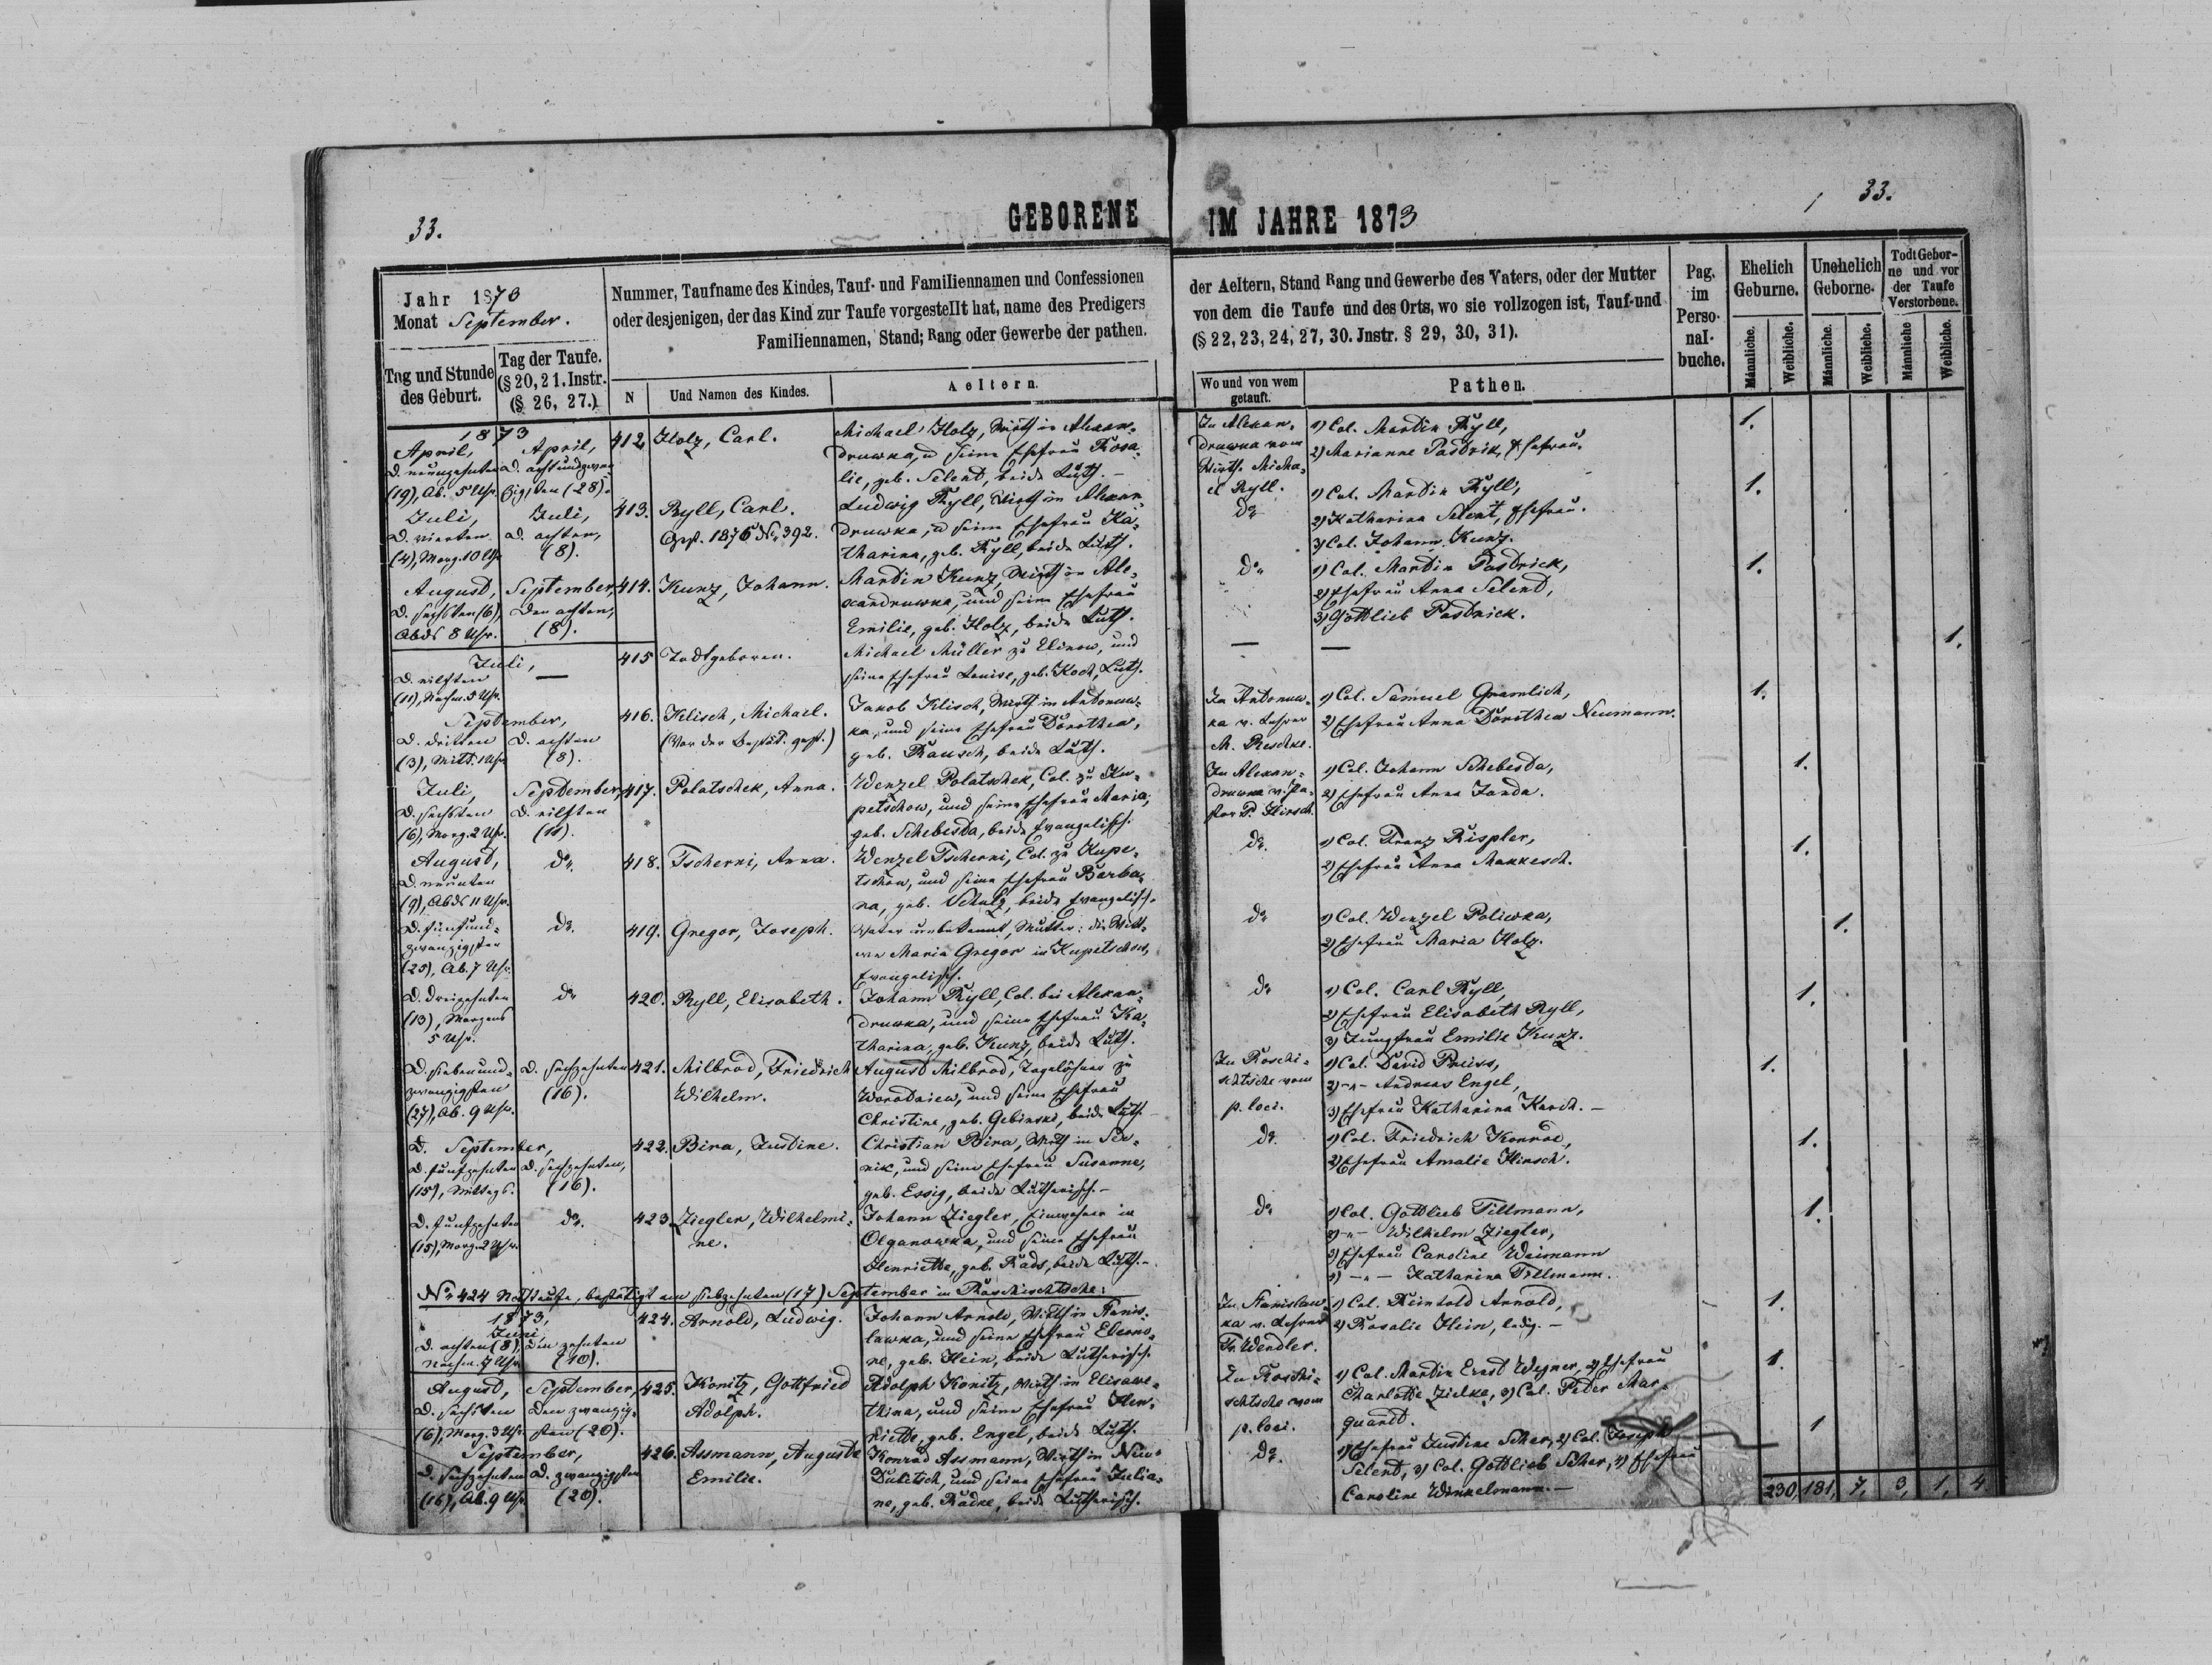 33.
GEBORENE
IM JAHRE 1873
33.
Jahr 1873
Monat September.
Tag und Stunde des Geburt.
Tag der Taufe. (§ 20, 21. Instr. (§ 26, 27.)
Nummer, Taufname des Kindes, Tauf- und Familiennamen und Confessionen
oder desjenigen, der das Kind zur Taufe vorgestellt hat, name des Predigers
Familiennamen, Stand; Rang oder Gewerbe der pathen.
N
Und Namen des Kindes.
Aeltern.
der Aeltern, Stand Rang und Gewerbe des Vaters, oder der Mutter
von dem die Taufe und des Orts, wo sie vollzogen ist, Tauf-und
(§ 22, 23, 24, 27, 30. Jnstr. § 29, 30, 31).
Wo und von wem getauft.
Pathen.
Pag. im Perso-nal-buche.
Ehelich Geburne.
Unehelich Geborne.
Todt Gebor-ne und vor der Taufe Verstorbene.
Männliche.
Weibliche.
Männliche.
Weibliche.
Männliche
Weibliche.
1873
April,
D. neunzehnten
(19), Ab. 5 Uhr.
April,
D. achtundzwan-
zigsten (28).
412
Holz, Carl.
Michael Holz, Wirth in Alexan-
druwka, u seine Ehefrau Rosa-
lie, geb. Selent, beide Luth.-
In Alexan-
druwka vom
Wirth Micha-
el Ryll.
1) Col. Martin Ryll,
2) Marianne Pastrik, Ehefrau.
1.
Juli,
D. vierten
(4), Morg. 10 Uhr
Juli,
D. achten,
(8).
413.
Ryll, Carl.
Gest. 1876 No. 392.
Ludwig Ryll, Wirth in Alexan-
druwka, u seine Ehefrau Ka-
tharina, geb. Ryll, beide Luth.
do
1) Col. Martin Ryll,
2) Katharina Selent, Ehefrau.
3) Col. Johann Kunz.
1.
August,
D. sechsten (6),
Abds 8 Uhr.
September,
Den achten,
(8).
414.
Kunz, Johann.
Martin Kunz, Wirth in Ale-
xandruwka, und seine Ehefrau
Emilie, geb. Holz, beide Luth.
do
1) Col. Martin Pastrick,
2) Ehefrau Anna Selent,
3) Gottlieb Pastrick.
1.
Juli,
D. eilften
(11), Nachm. 5 Uhr.
—
415
Todtgeboren.
Michael Müller zu Elinow, und
seine Ehefrau Louise, geb. Koch, Luth.
—
—
1.
September,
D. dritten
(3), Mitt. 1 Uhr
D. achten
(8).
416.
Klisch, Michael.
(Vor der Bestät. gest.)
Jakob Klisch, Wirth in Antonuw-
ka, und seine Ehefrau Dorothea,
geb. Rausch, beide Luth.
In Antonuw-
ka v. Lehrer
M. Reschke.
1) Col. Samuel Gramlich,
2) Ehefrau Anna Dorothea Neumann.
1.
Juli,
D. sechsten
(6), Morg. 2 Uhr.
September,
D. eilften
(11).
417.
Polatschek, Anna.
Wenzel Polatschek, Col. zu Ku-
petschow, und seine Ehefrau Maria,
geb. Schebesta, beide Evangelisch.
In Alexan-
druwka v. Pa-
stor P. Hirsch.
1) Col. Johann Schebesta,
2) Ehefrau Anna Janda.
1.
August,
D. neunten
(9), Abds 11 Uhr.
do
418.
Tscherni, Anna.
Wenzel Tscherni, Col. zu Kupe-
tschow, und seine Ehefrau Barba-
ra, geb. Schulz, beide Evangelisch.
do.
1) Col. Franz Rispler,
2) Ehefrau Anna Makkesch.
1.
D. fünfund-
zwanzigsten
(25), Ab. 7 Uhr.
do.
419.
Gregor, Joseph.
Vater unbekannt, Mutter: die Witt-
we Maria Gregor in Kupetschow,
Evangelisch.
do
1) Col. Wenzel Poliwka,
2) Ehefrau Maria Holz.
1.
D. dreizehnten
(13), Morgens
5 Uhr.
do
420.
Ryll, Elisabeth.
Johann Ryll, Col. bei Alexan-
druwka, und seine Ehefrau Ka-
tharina, geb. Kunz, beide Luth.
do
1) Col. Carl Ryll,
2) Ehefrau Elisabeth Ryll,
3) Jungfrau Emilie Kunz.
1.
D. siebenund-
zwanzigsten
(27), Ab. 9 Uhr.
D. sechzehnten
(16).
421.
Milbrod, Friedrich
Wilhelm.
August Milbrod, Tagelöhner zu
Worodaiew, und seine Ehefrau
Christine, geb. Gebinski, beide Luth.-
In Roschi-
schtsche vom
p. loci.
1) Col. David Preiss,
2) -"- Andreas Engel,
3) Ehefrau Katharina Karch.-
1.
D. September,
D. fünfzehnten
(15), Mittags.
D. sechzehnten,
(16).
422.
Bira, Justine.
Christian Bira, Wirth in Sin-
nik, und seine Ehefrau Susanne,
geb. Essig, beide Lutherisch.-
do.
1) Col. Friedrich Konrad,
2) Ehefrau Amalie Hirsch.
1.
D. fünfzehnten
(15), Morg. 2 Uhr.
do.
423.
Ziegler, Wilhelmi-
ne.
Johann Ziegler, Einwohner in
Olganowka, und seine Ehefrau
Henriette, geb. Rads, beide Luth.-
do
1) Col. Gottlieb Tillmann,
2) -"- Wilhelm Ziegler,
3) Ehefrau Caroline Weimann
4) -"- Katharina Tillmann.
1.
No 424 Nothtaufe, bestätigt am siebzehnten (17) September in Roschischtsche:
1873,
Juni,
D. achten (8),
Nachm. 7 Uhr
Den zehnten
(10).
424.
Arnold, Ludwig.
Johann Arnold, Wirth in Stanis-
lawka, und seine Ehefrau Eleono-
re, geb. Hein, beide Lutherisch.
In Stanislaw-
ka v. Lehrer
Fr. Wendler.
1) Col. Reinhold Arnold,
2) Rosalie Hein, ledig.-
1.
August,
D. sechsten
(6), Morg. 3 Uhr.
September,
Den zwanzig-
sten (20).
425.
Konitz, Gottfried
Adolph.
Adolph Konitz, Wirth in Elisawe-
thina, und seine Ehefrau Hen-
riette, geb. Engel, beide Luth.
In Roschi-
schtsche vom
p. loci.
1) Col. Martin Ernst Wegner, 2) Ehefrau
Charlotte Zielke, 3) Col. Peter Mar-
quardt.
1.
September,
D. sechzehnten
(16), Ab. 9 Uhr.
D. zwanzigsten
(20).
426.
Assmann, Auguste
Emilie.
Konrad Assmann, Wirth in Neu-
Dubitsch, und seine Ehefrau Julia-
ne, geb. Radke, beide Lutherisch.
do.
1) Ehefrau Justine Scher, 2) Col. Joseph
Selent, 3) Col. Gottlieb Scher, 4) Ehefrau
Caroline Winkelmann.-
1
230, 181, 7, 3, 1, 4